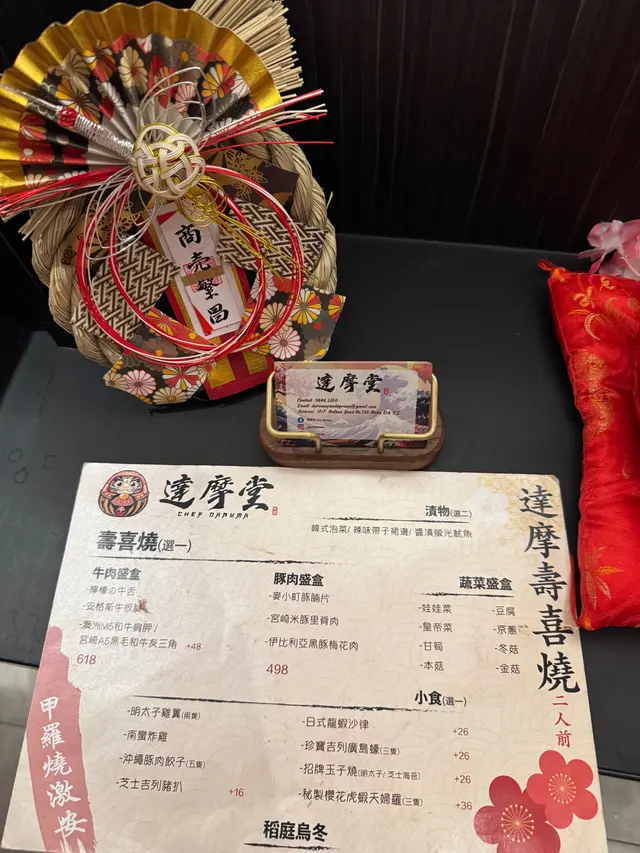 商売繁昌
達摩堂
達摩堂
CHEF DARUMA
漬物(選二)
韓式泡菜/ 辣味帶子裙邊/ 醬漬螢光魷魚
達摩壽喜燒
二人前
壽喜燒(選一)
牛肉盛盒
-檸檬の牛舌
-安格斯牛板腱
-澳洲M5和牛肩胛 /
宮崎A5黑毛和牛友三角 +48
618
豚肉盛盒
-麥小町豚腩片
-宮崎米豚里脊肉
-伊比利亞黑豚梅花肉
498
蔬菜盛盒
-娃娃菜 -豆腐
-皇帝菜 -京蔥
-甘筍 -冬菇
-本菇 -金菇
甲羅燒激安
小食(選一)
-明太子雞翼(兩隻)
-南蠻炸雞
-沖繩豚肉餃子(五隻)
-芝士吉列豬扒 +16
-日式龍蝦沙律 +26
-珍寶吉列廣島蠔(三隻) +26
-招牌玉子燒(明太子/ 芝士海苔) +26
-秘製櫻花虎蝦天婦羅(三隻) +36
稻庭烏冬